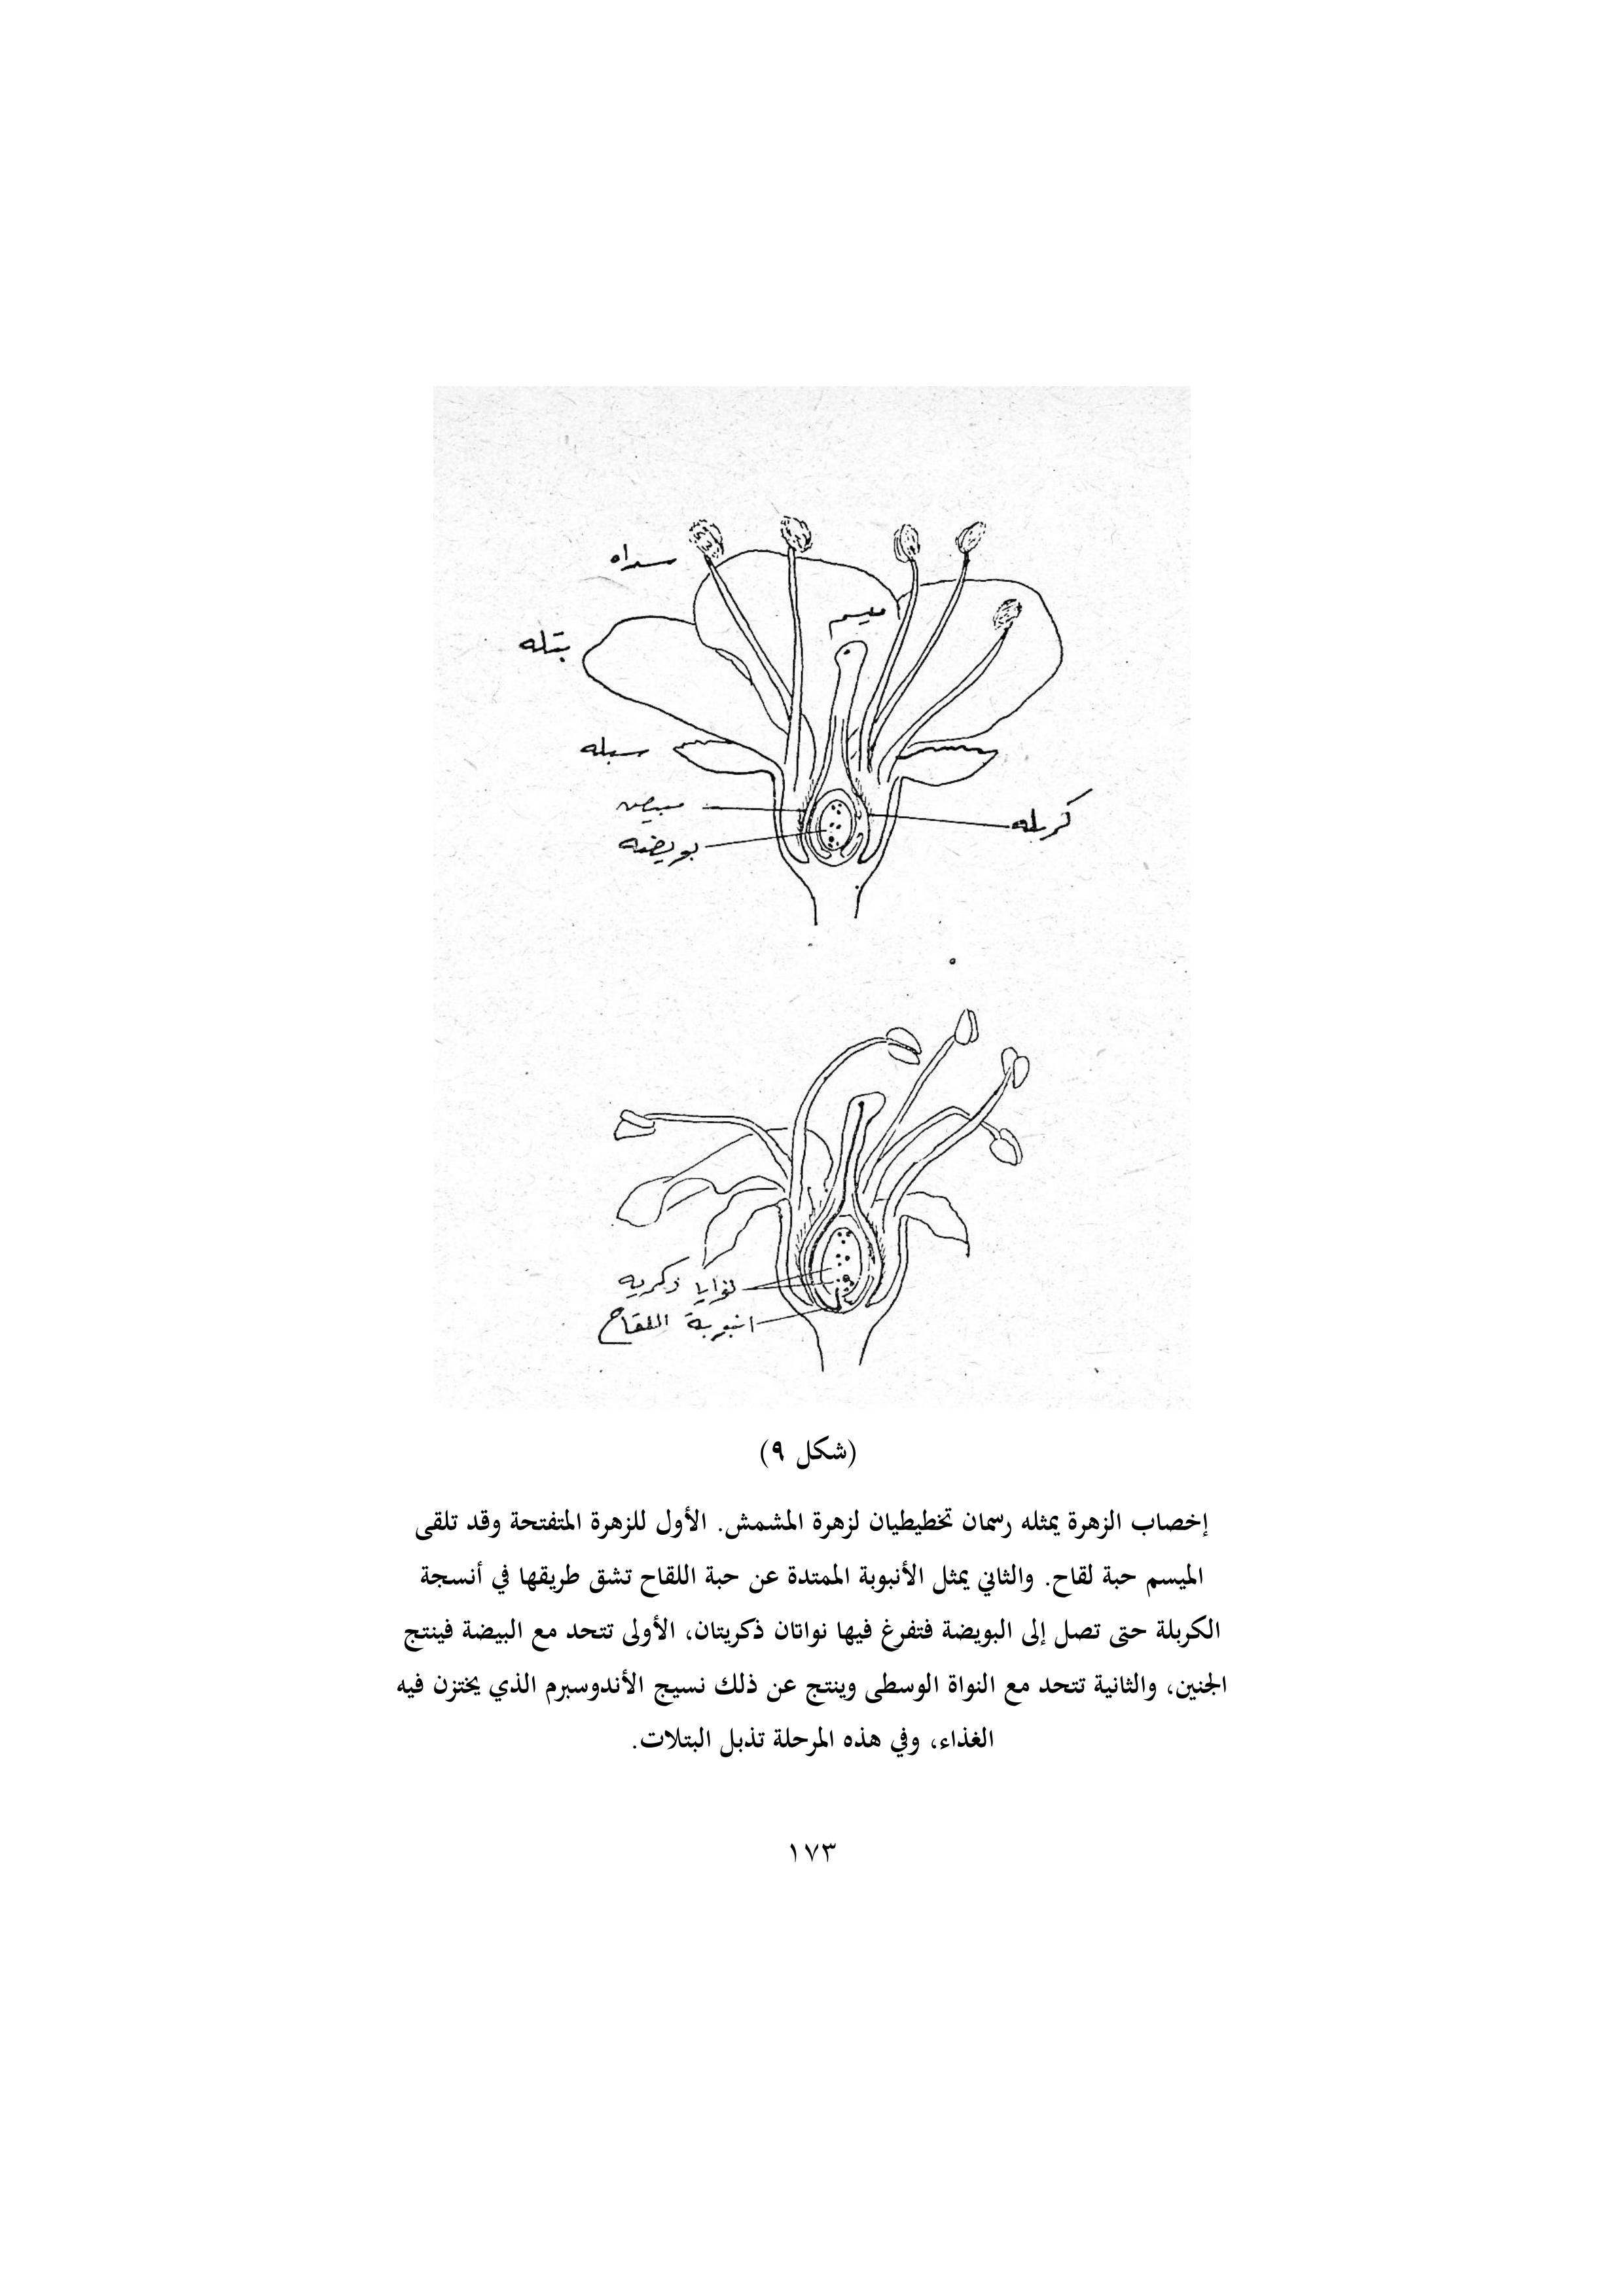 سداه
ميسم
بتله
سبله
مبيض
كربله
بويضه
نوايا ذكريه
انبوبة اللقاح
(شكل ٩)
إخصاب الزهرة يمثله رسمان تخطيطيان لزهرة المشمش. الأول للزهرة المتفتحة وقد تلقى
الميسم حبة لقاح. والثاني يمثل الأنبوبة الممتدة عن حبة اللقاح تشق طريقها في أنسجة
الكربلة حتى تصل إلى البويضة فتفرغ فيها نواتان ذكريتان، الأولى تتحد مع البيضة فينتج
الجنين، والثانية تتحد مع النواة الوسطى وينتج عن ذلك نسيج الأندوسبرم الذي يختزن فيه
الغذاء، وفي هذه المرحلة تذبل البتلات.
١٧٣